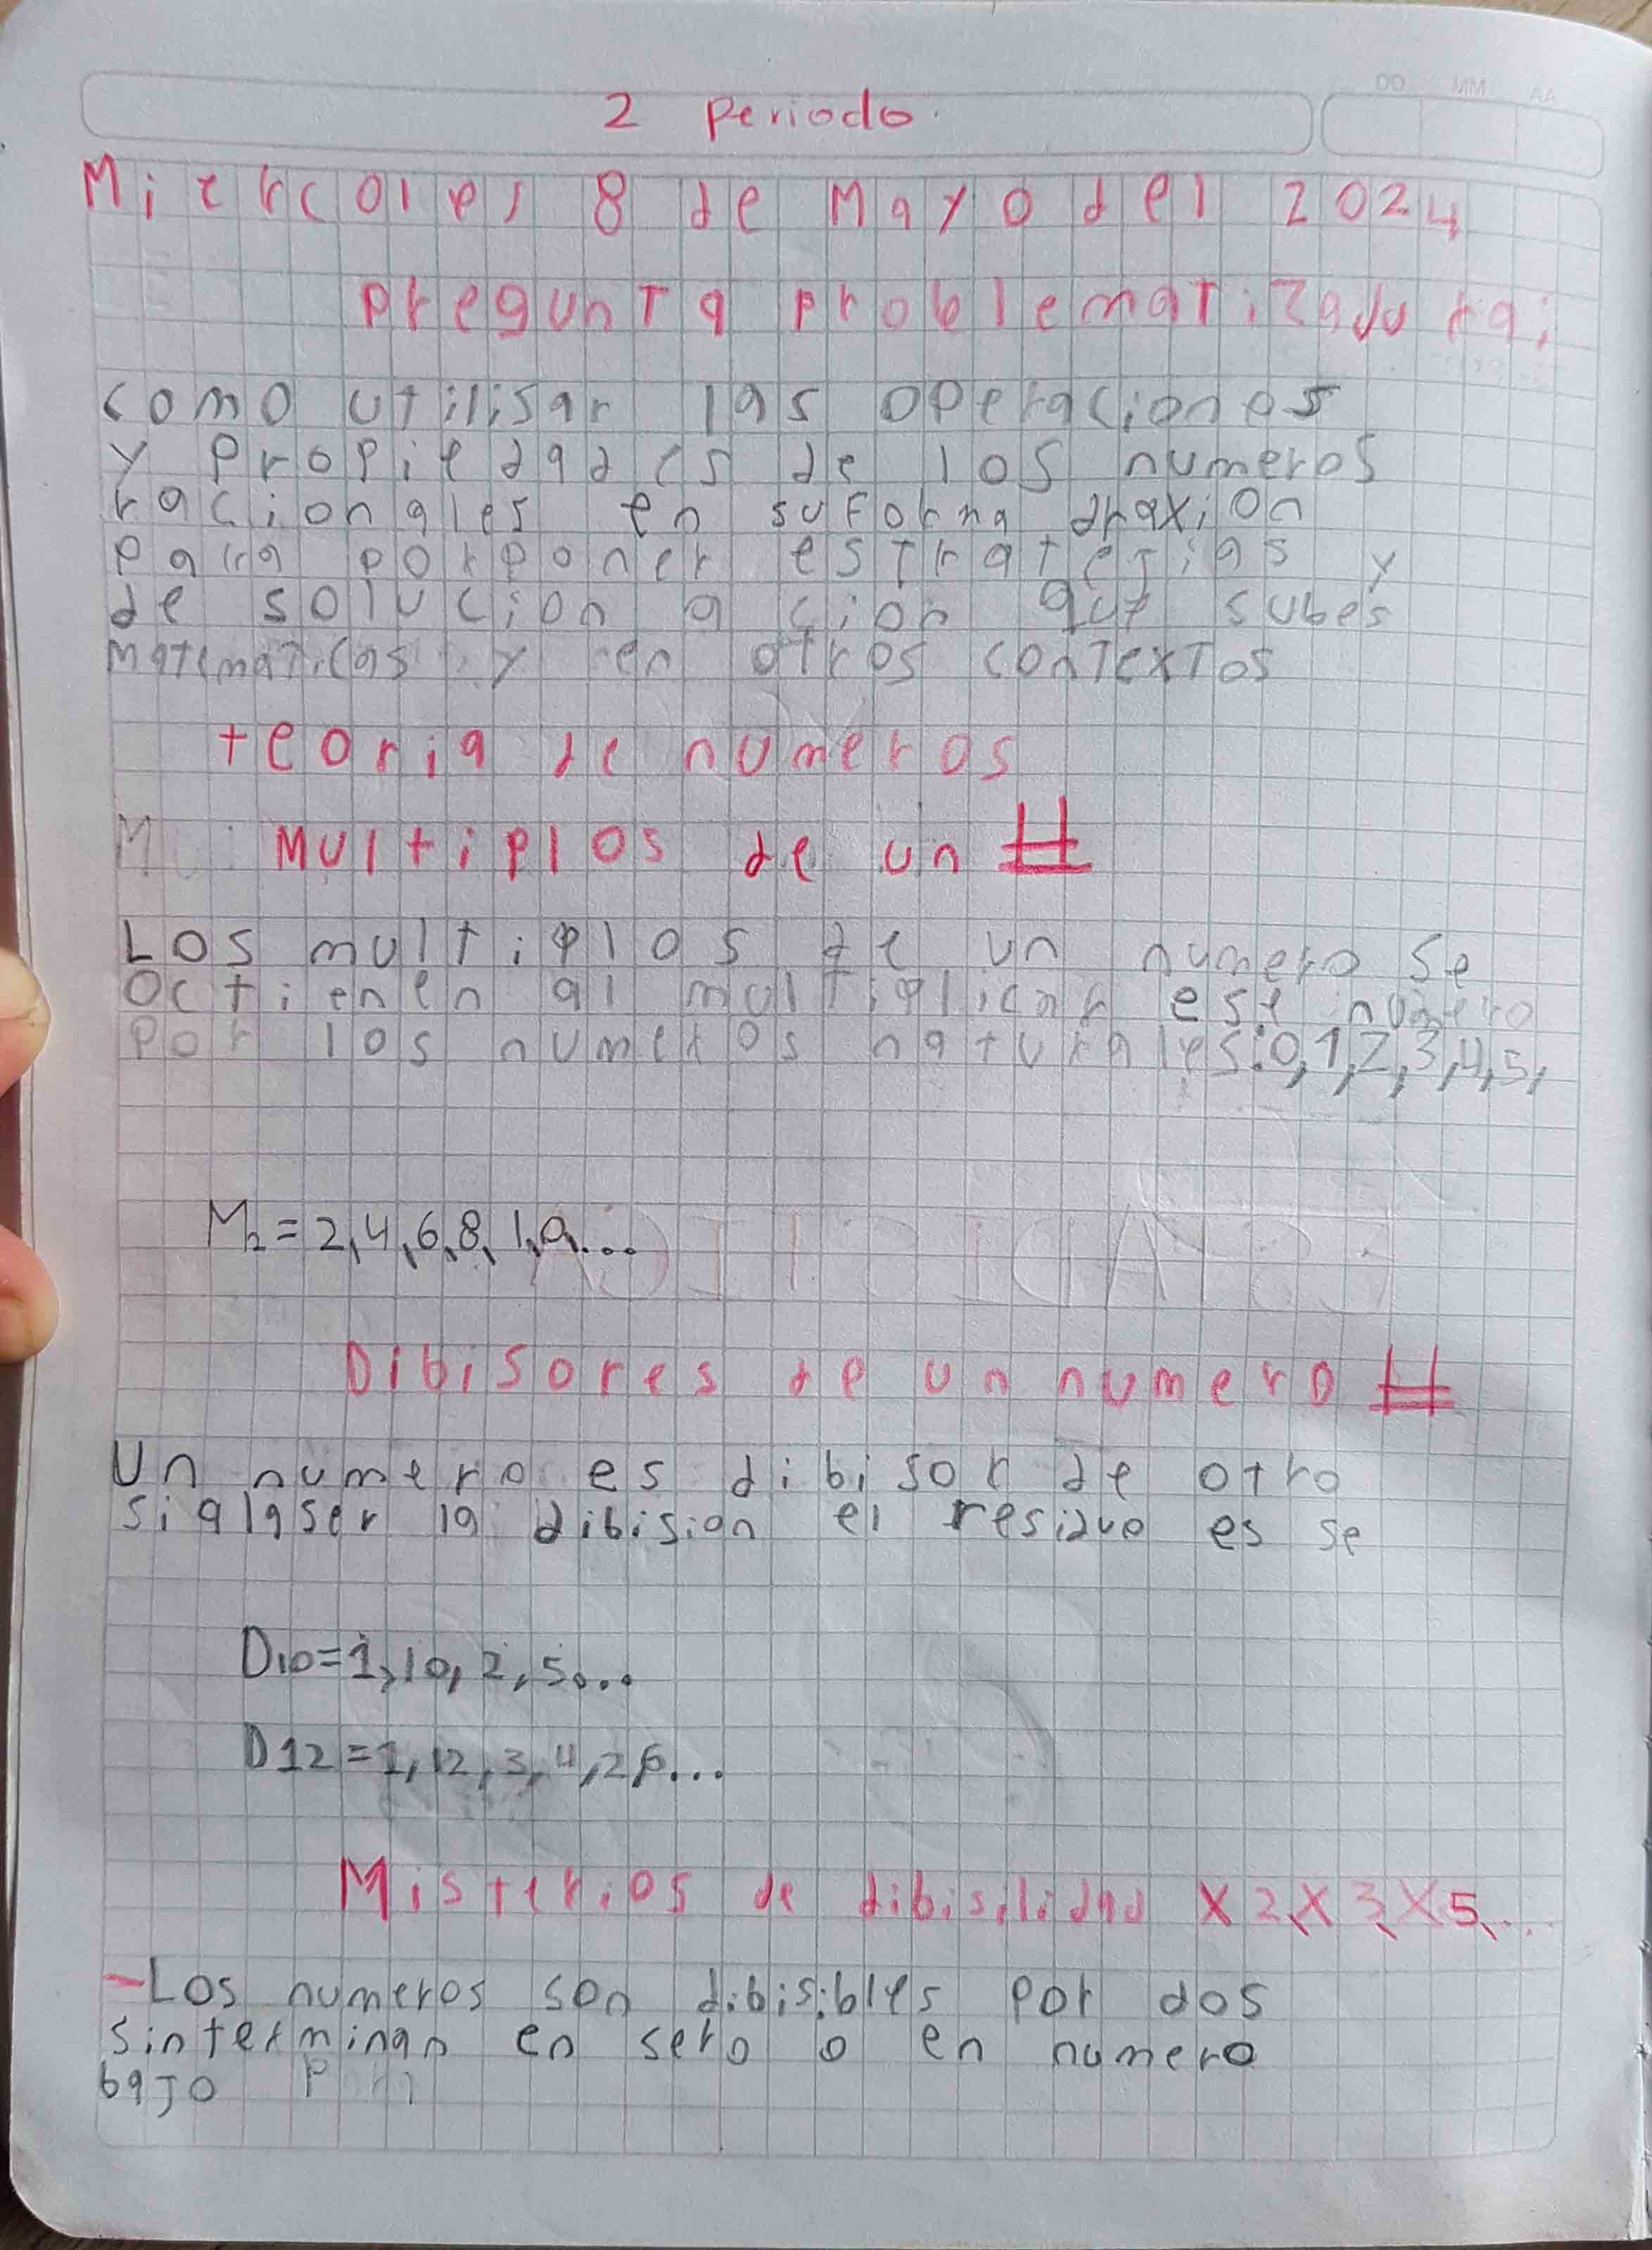 2 Periodo.
DD MM AA
Miercoles 8 de Mayo del 2024
Pregunta problematizadora:
como utilisar las operaciones
y propiedades de los numeros
racionales en su forma draxion
para porponer estrategias y
de solucion a cion que subes
matematicas y en otros contextos
teoria de numeros
Multiplos de un #
Los multiplos de un numero se
octienen al multiplicar ese numero
por los numeros naturales:0,1,2,3,4,5,
M2=2,4,6,8,1,0,...
Dibisores de un numero #
Un numero es dibisor de otro
si alaser la dibision el residuo es se
D10=1,10,2,5...
D12=1,12,3,4,2,6...
Misterios de dibisilidad X2,X3,X5,...
-Los numeros son dibisibles por dos
sinterminan en sero o en numero
bajo